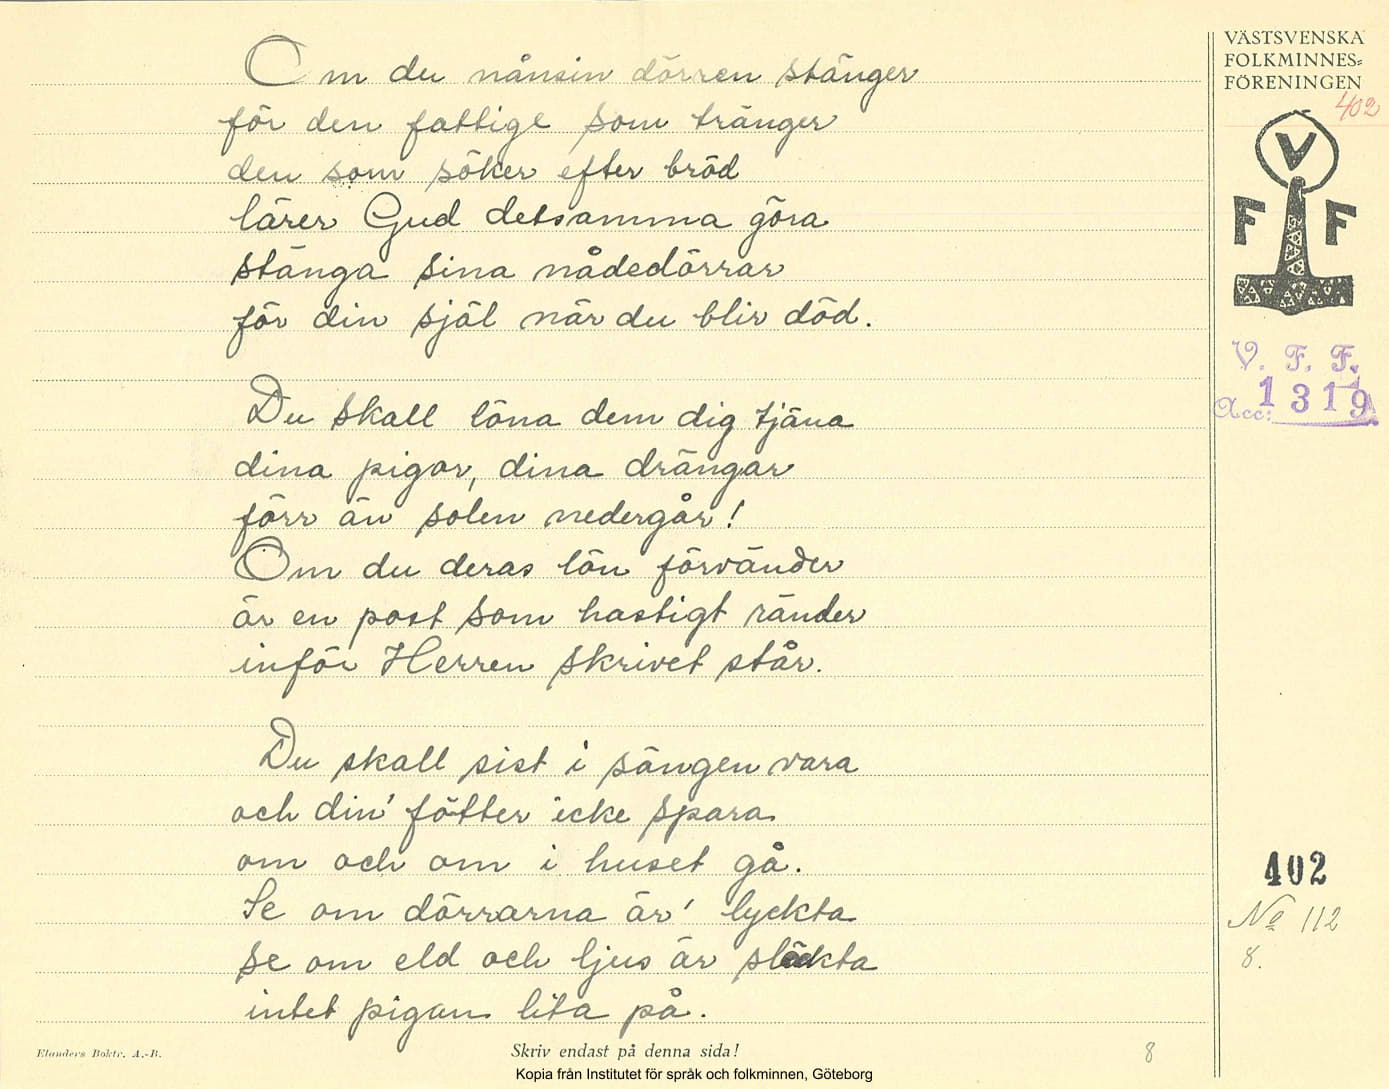 Om du nånsin dörren stänger
för den fattige som tränger
den som söker efter bröd
lärer Gud detsamma göra
stänga sina nådedörrar
för din själ när du blir död.
Du skall löna dem dig tjäna
dina pigor, dina drängar
förr än solen nedergår!
Om du deras lön förvänder
är en post som hastigt ränder
inför Herren skrivet står.
Du skall sist i sängen vara
och din' fötter icke spara
om och om i huset gå.
Se om dörrarna är' lyckta
se om eld och ljus är släkta
intet pigan lita på.
Elanders Boktr. A.-B.
Skriv endast på denna sida!
8
Kopia från Institutet för språk och folkminnen, Göteborg
VÄSTSVENSKA
FOLKMINNES=
FÖRENINGEN
402
V
F F
V. F. F.
Acc: 1319
402
No 112
8.